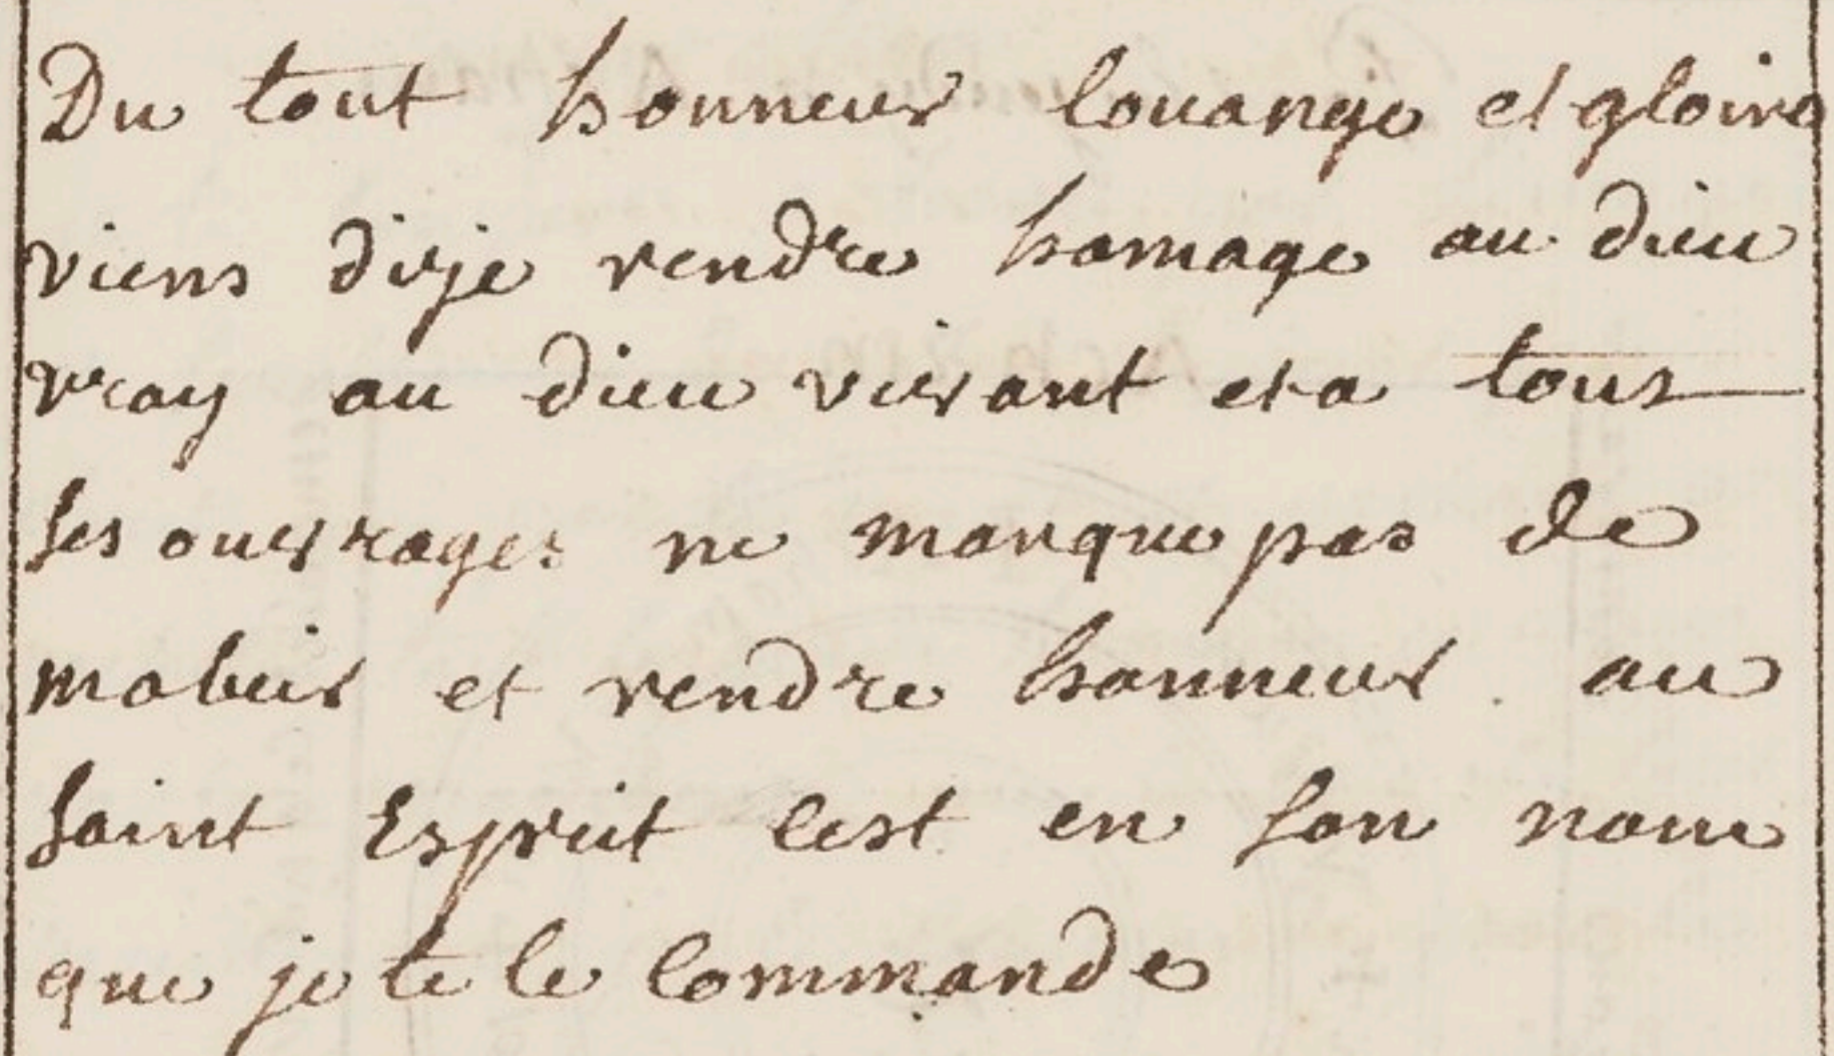 Du tout honneur louange et gloire
viens disje rendre homage au dieu
vray au dieu vivant et a tous
ses ouvrages ne manque pas de
mobeir et rendre honneur au
saint Esprit cest en son nom
que je te le commande